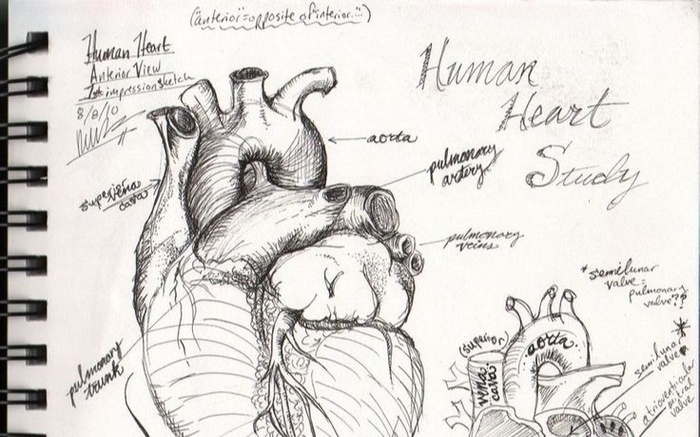 ("anterior"=opposite of "interior"...)
Human Heart
Anterior View
1st impression sketch
8/8/10
Human
Heart
Study
aorta
pulmonary
artery
superior vena
cava
pulmonary
veins
pulmonary
trunk
*semilunar
valve=
pulmonary
valve??
(superior)
vena
cava
aorta
semilunar
valve
atrioventricular
mitral
valve